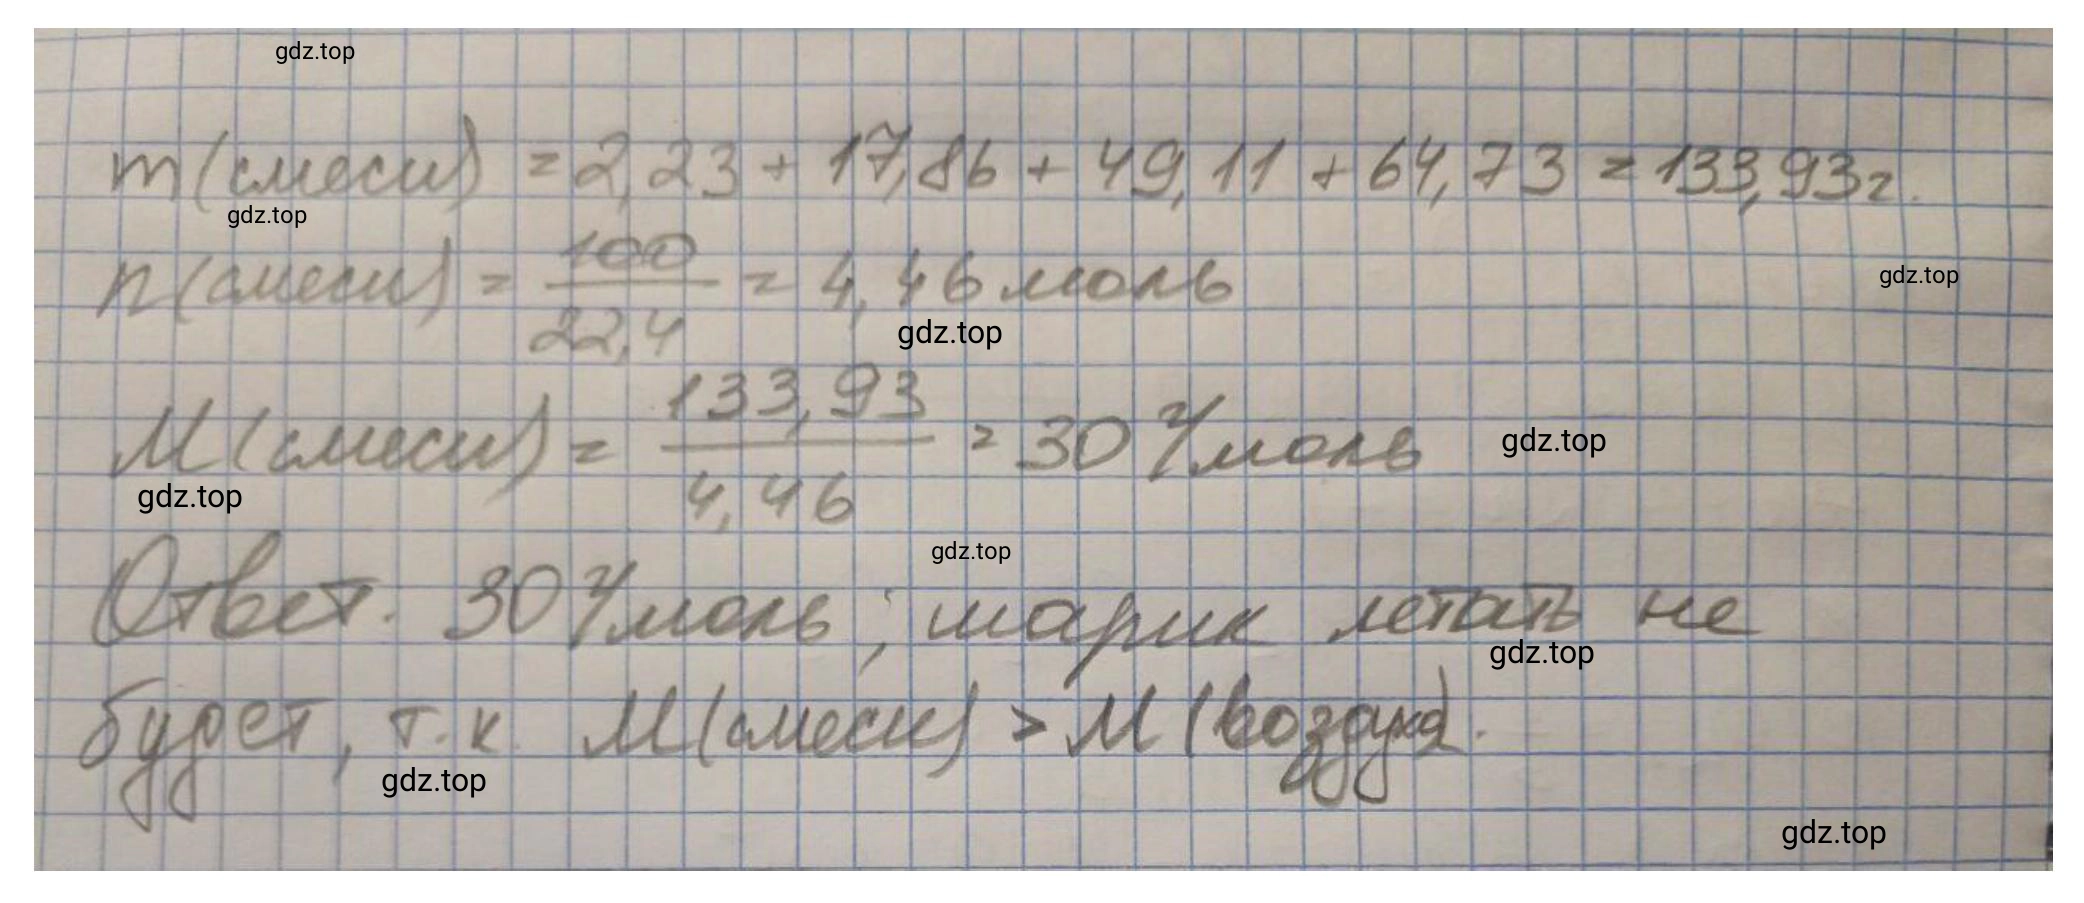 gdz.top
m(смеси) = 2,23 + 17,86 + 49,11 + 64,73 = 133,93г.
gdz.top
n(смеси) = 100/22,4 = 4,46 моль
gdz.top
gdz.top
M(смеси) = 133,93/4,46 = 30 г/моль
gdz.top
gdz.top
gdz.top
Ответ. 30 г/моль; шарик летать не
gdz.top
будет, т.к. M(смеси) > M(воздуха).
gdz.top
gdz.top